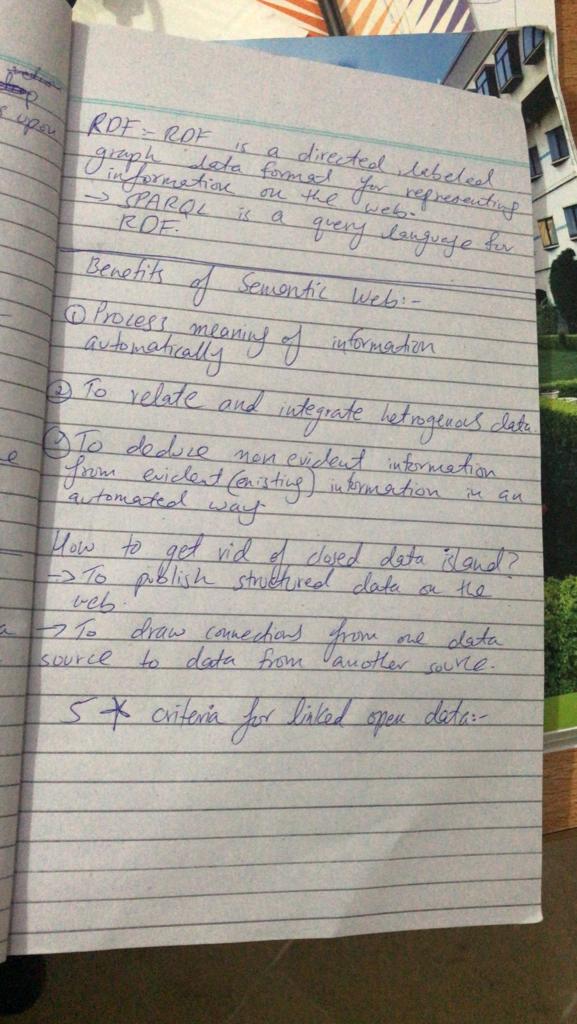 upon
RDF = RDF is a directed, labeled
graph data format for representing
information on the web.
→ SPARQL is a query language for
RDF.
Benefits of Semantic Web:-
① Process meaning of information
automatically
② To relate and integrate hetrogenous data.
③ To deduce non evident information
from evident (existing) information in an
automated way.
How to get rid of closed data island?
→ To publish structured data on the
web.
→ To draw connections from one data
source to data from another source.
5 * criteria for linked open data:-